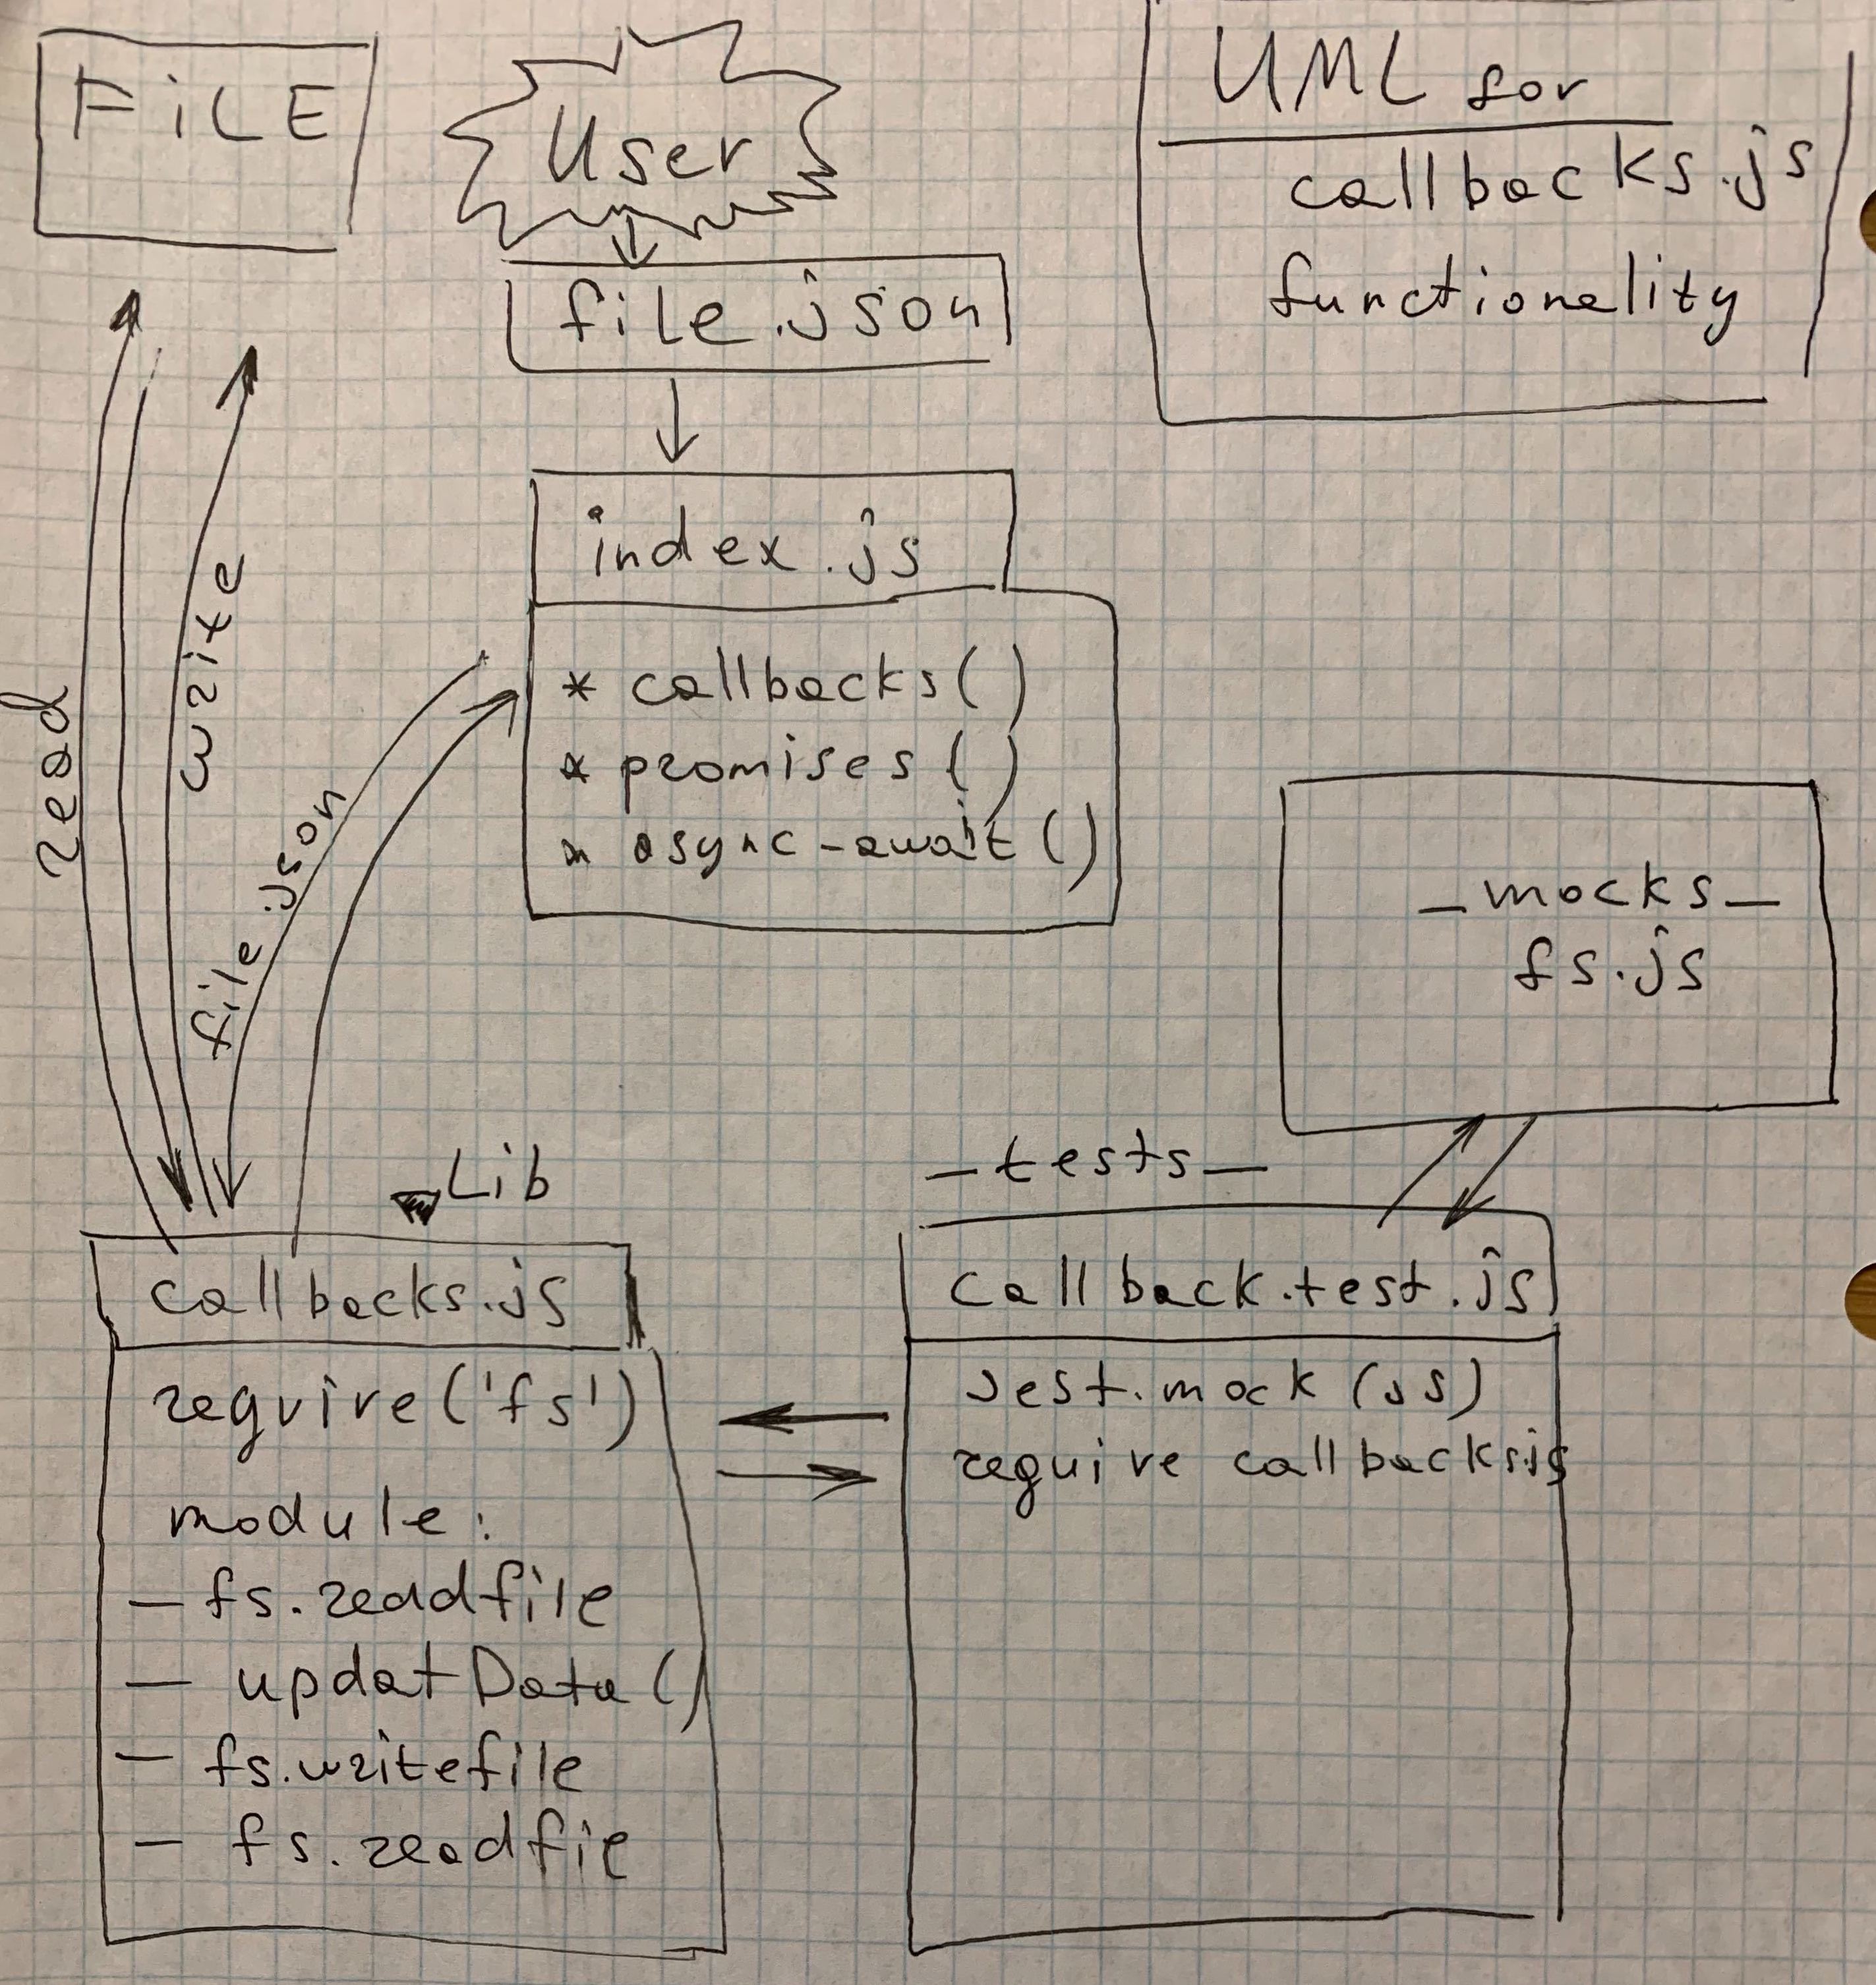 FiLE
User
UML for
callbacks.js
functionality
file.json
index.js
* callbacks()
* promises()
* async-await()
read
write
file.json
_mocks_
fs.js
Lib
_tests_
callbacks.js
require('fs')
module:
— fs.readfile
— updatData()
— fs.writefile
— fs.readfie
callback.test.js
Jest.mock(js)
require callbacks.js